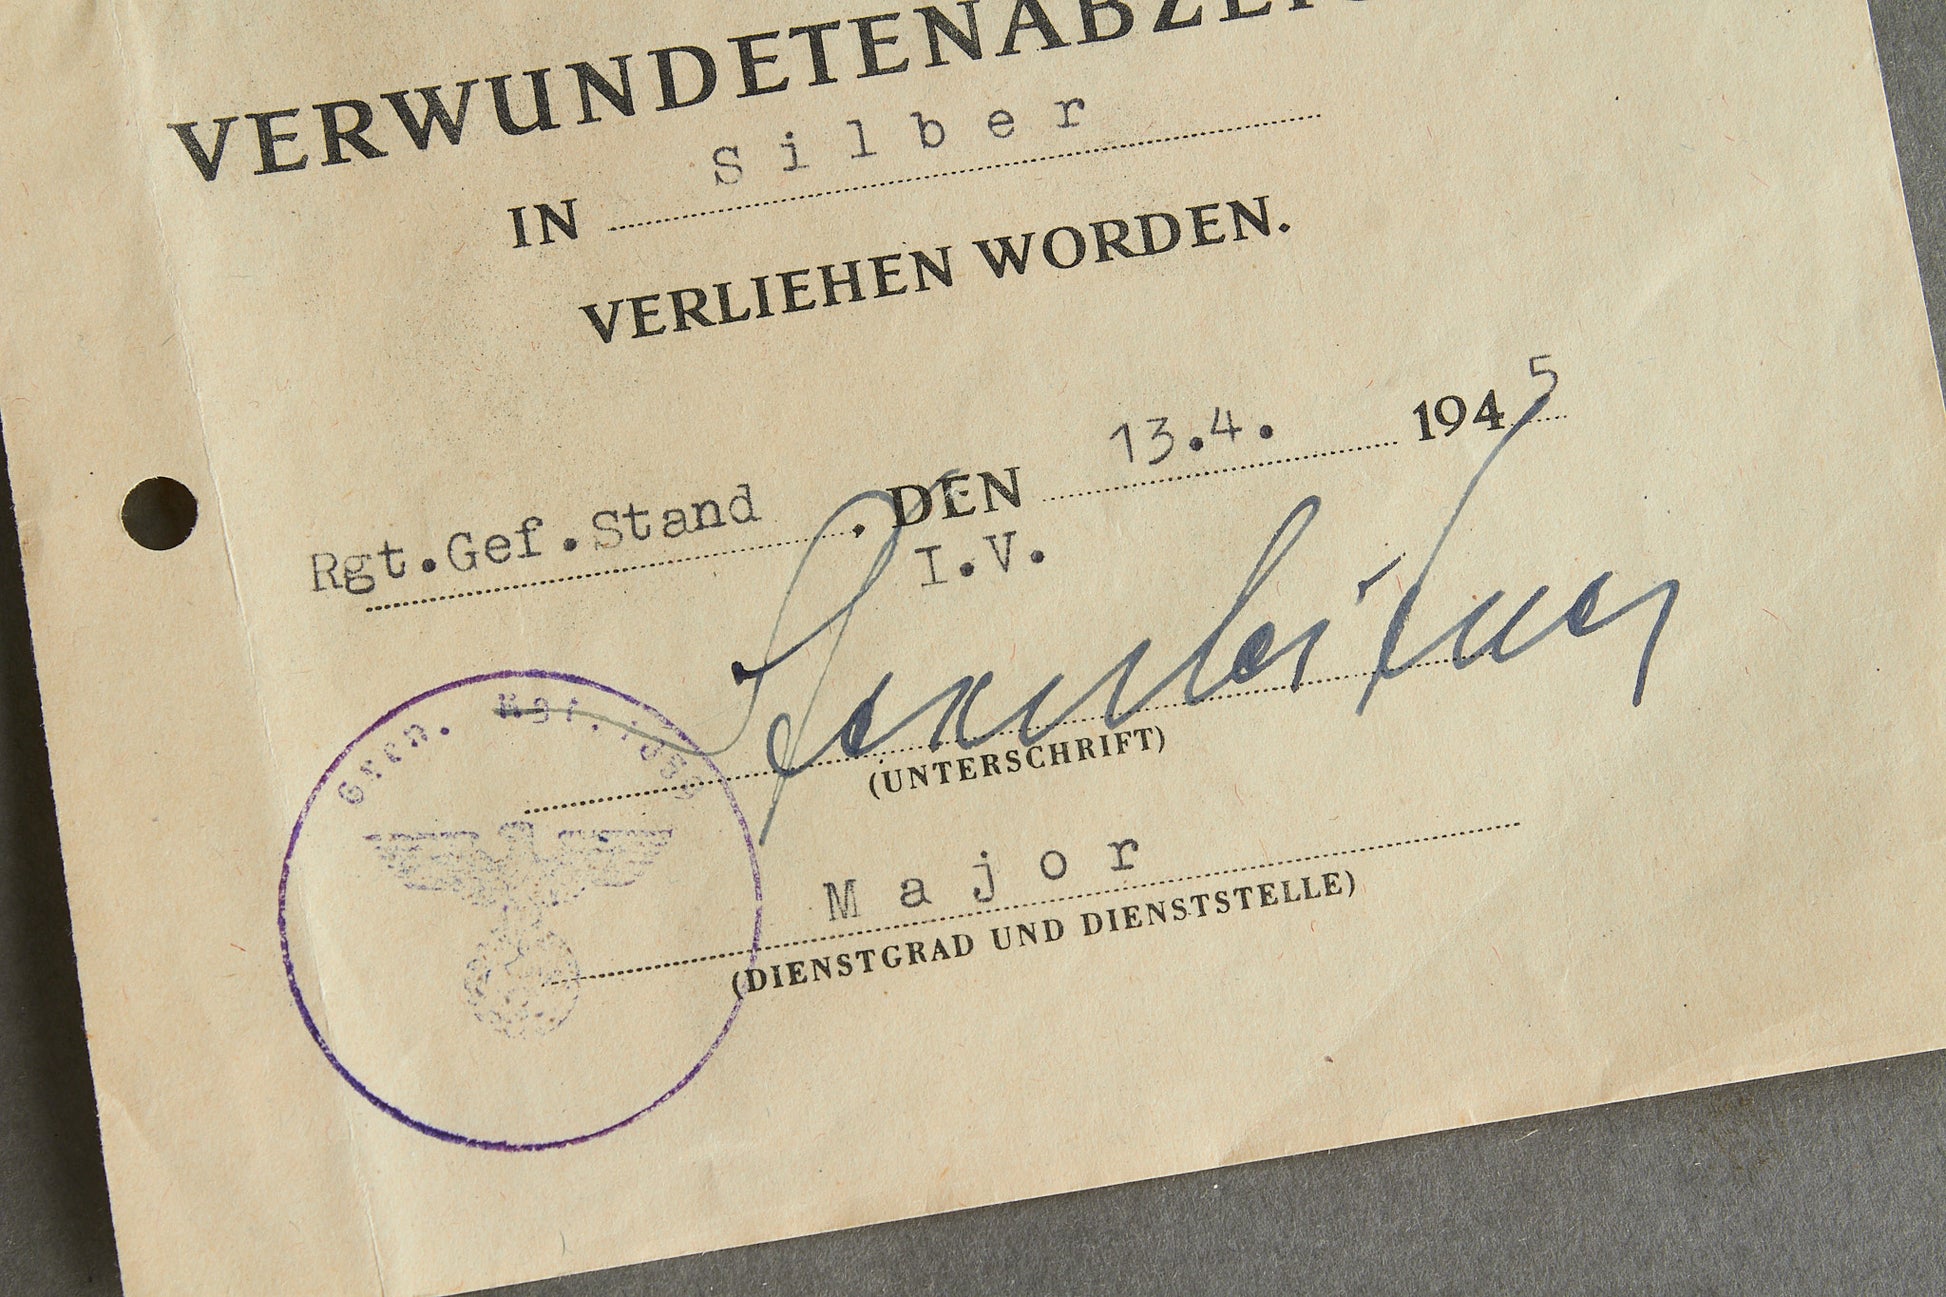 VERWUNDETENABZEI
IN Silber
VERLIEHEN WORDEN.
Rgt.Gef.Stand, DEN 13.4. 1945
I.V.
(UNTERSCHRIFT)
Major
(DIENSTGRAD UND DIENSTSTELLE)
Gren. Rgt.